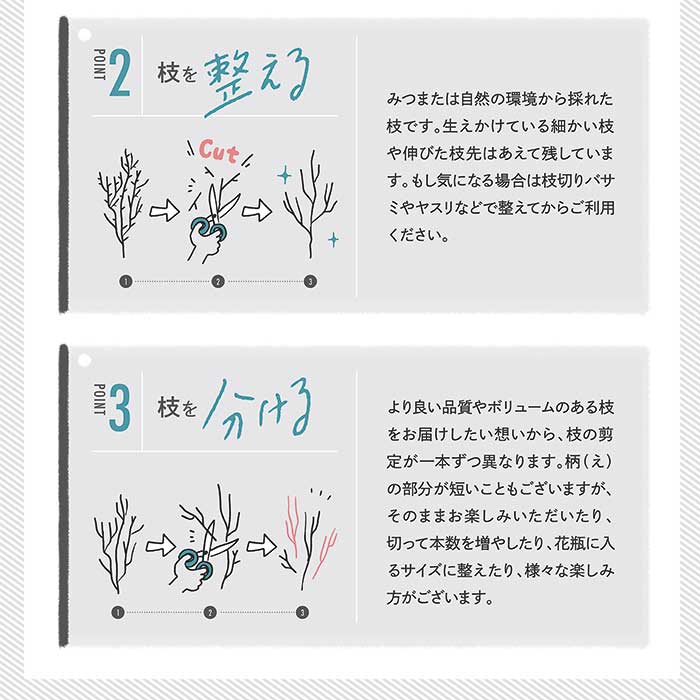 POINT 2
枝を整える
Cut
1 2 3
みつまたは自然の環境から採れた
枝です。生えかけている細かい枝
や伸びた枝先はあえて残していま
す。もし気になる場合は枝切りバサ
ミやヤスリなどで整えてからご利用
ください。
POINT 3
枝を分ける
1 2 3
より良い品質やボリュームのある枝
をお届けしたい想いから、枝の剪
定が一本ずつ異なります。柄(え)
の部分が短いこともございますが、
そのままお楽しみいただいたり、
切って本数を増やしたり、花瓶に入
るサイズに整えたり、様々な楽しみ
方がございます。